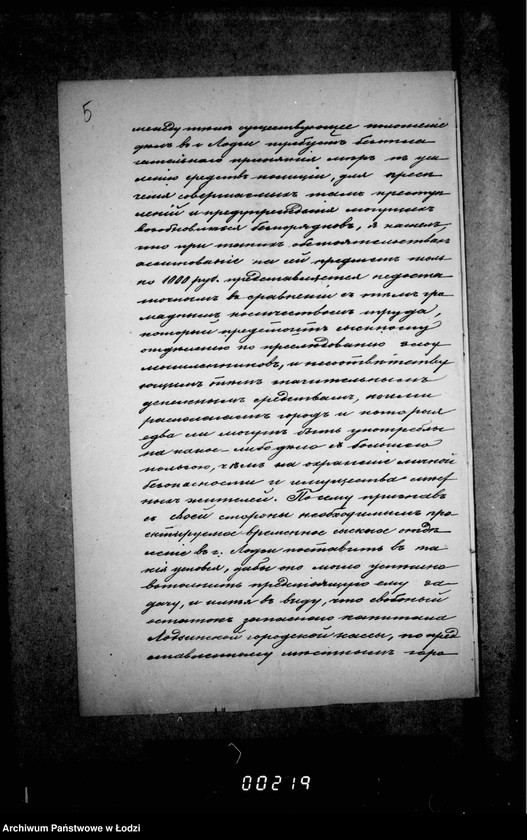 5
между тѣмъ существующее положеніе
дѣлъ въ г. Лодзи требуетъ
принятія мѣръ къ уси
ленію средствъ полиціи, для пресѣ
ченія совершаемыхъ тамъ преступ
леній и предупрежденія могущихъ
возобновляться безпорядковъ, я нашелъ,
что при такихъ обстоятельствахъ
ассигнованіе на сей предметъ толь
ко 1000 руб. представляется недоста
точнымъ въ сравненіи съ тѣмъ гро
маднымъ количествомъ труда,
который предстоитъ сыскному
отдѣленію по преслѣдованію злоу
мышленниковъ, и несоотвѣтству
ющимъ тѣмъ значительнымъ
денежнымъ средствамъ, коими
располагаетъ городъ и которыя
едва ли могутъ быть употреблены
на какое либо дѣло съ большею
пользою, чѣмъ на охраненіе личной
безопасности и имущества мѣст
ныхъ жителей. По сему признавъ
съ своей стороны необходимымъ про
ектируемое временное сыскное отдѣ
леніе въ г. Лодзи поставить въ та
кія условія, дабы оно могло успѣшно
выполнить предстоящую ему за
дачу, и имѣя въ виду, что свободный
остатокъ запаснаго капитала
Лодзинской городской кассы, по пред
ставленному мѣстнымъ горо
00219
Archiwum Państwowe w Łodzi